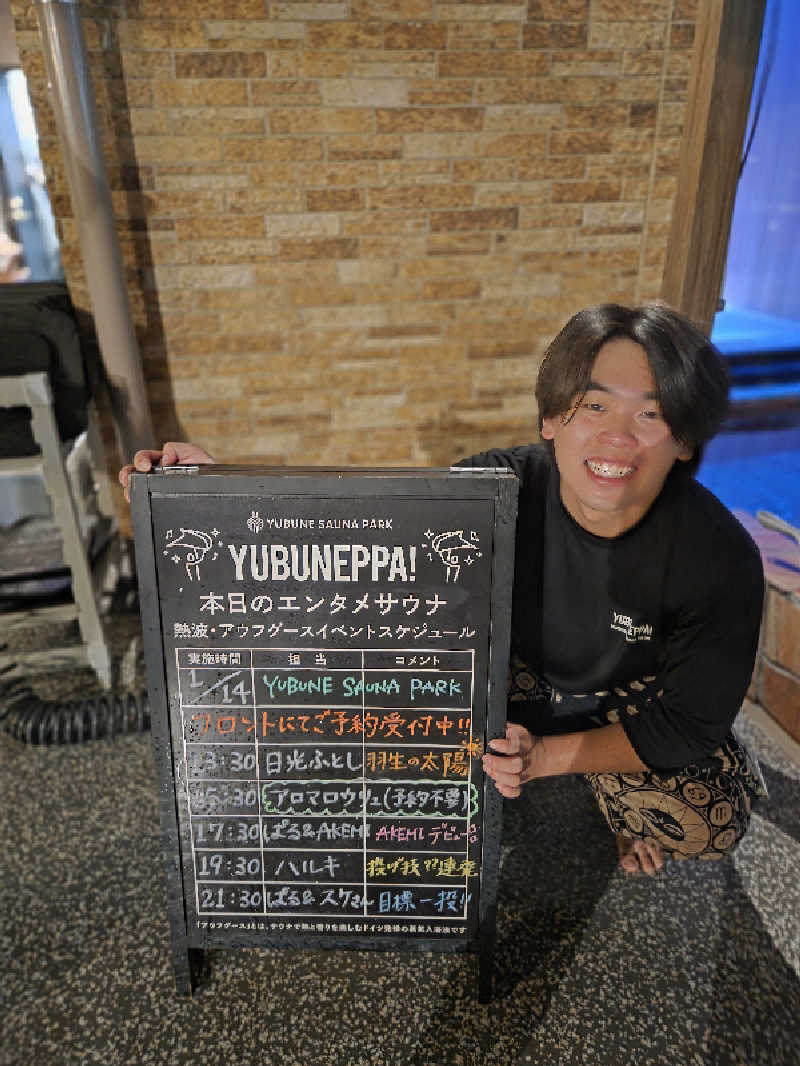 YUBUNE SAUNA PARK
YUBUNEPPA!
本日のエンタメサウナ
熱波・アウフグースイベントスケジュール
実施時間 担当 コメント
1/14 YUBUNE SAUNA PARK
フロントにてご予約受付中!!
13:30 日光ふとし 羽生の太陽
15:30 アロマロウリュ(予約不要)
17:30 ぱる&AKEMI AKEMIデビュー
19:30 ハルキ 投げ技 連発
21:30 ぱる&スケさん 目標一投!!
「アウフグース」とは、サウナで熱と香りを楽しむドイツ発祥の蒸気入浴法です
YUBUNEPPA!